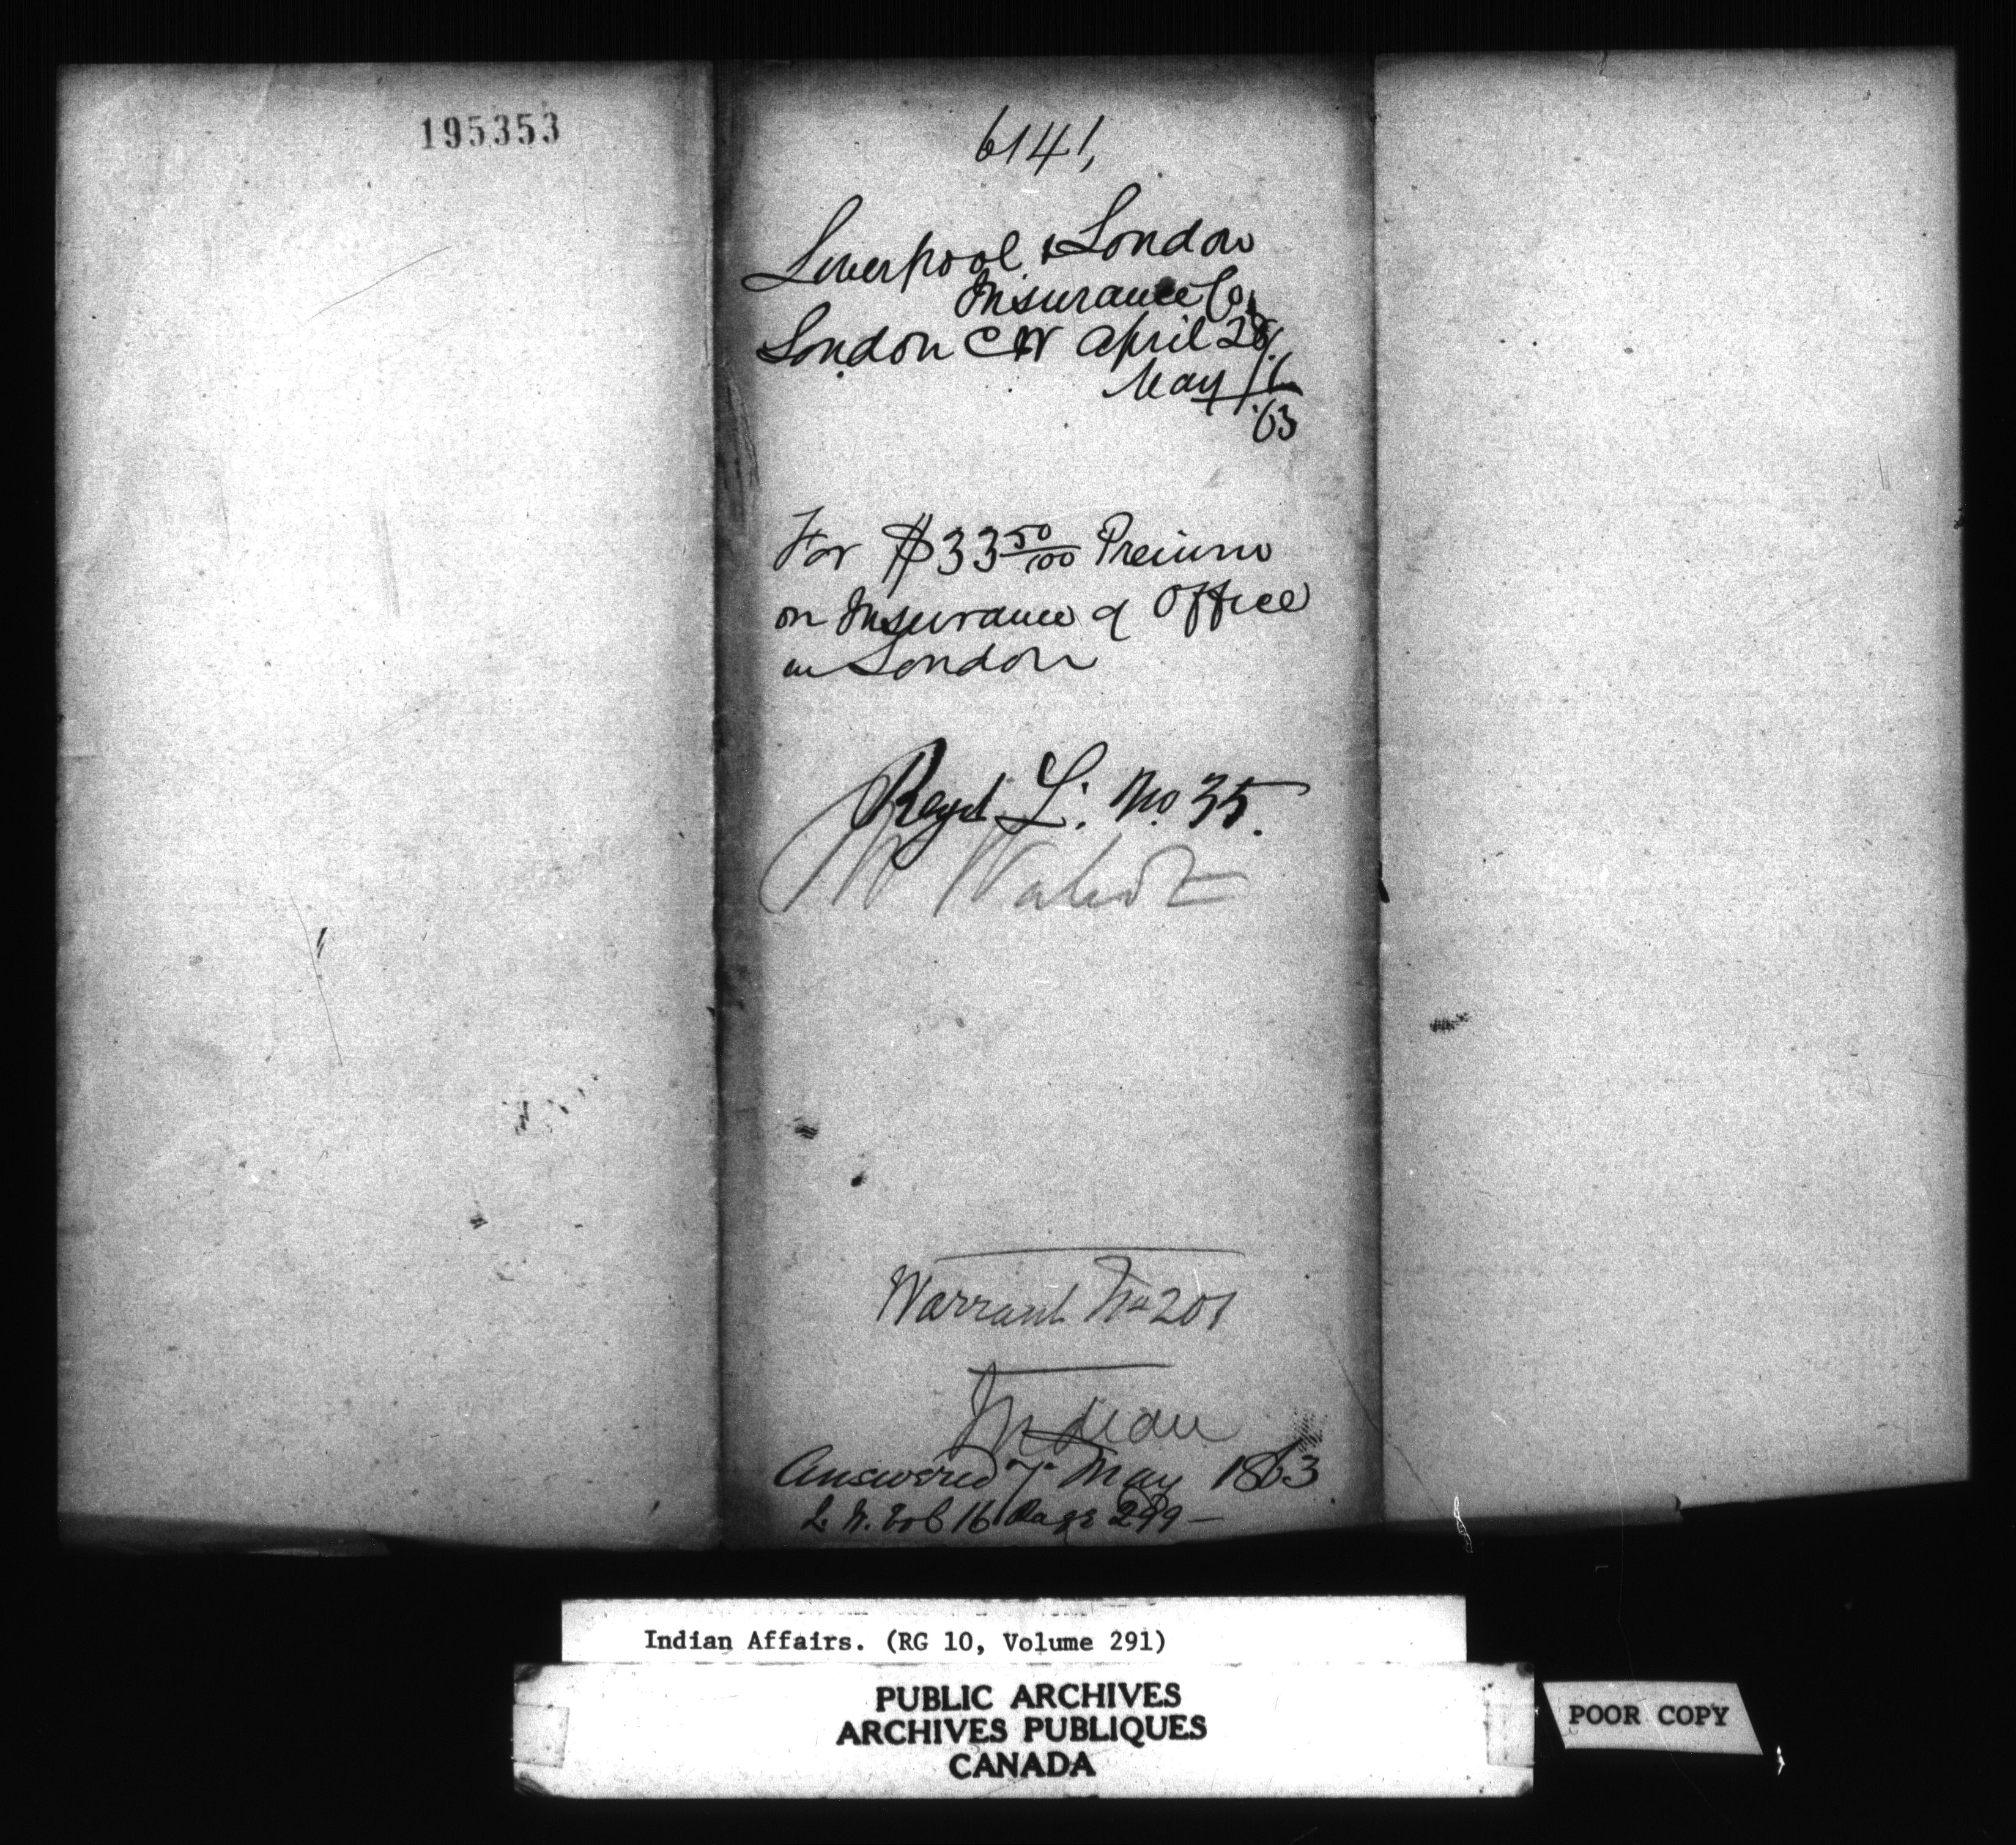 195353
6141,
Liverpool & London
Insurance Co,
London CW April 28/
May 1/6
'63
For $33 50/100 Preium
on Insurance of Office
in London
Regd L: No. 35.
Mr
Warrant No 201
Indian
Answered 7 May 1863
L. B. Vol 16 Page 299 -
Indian Affairs. (RG 10, Volume 291)
PUBLIC ARCHIVES
ARCHIVES PUBLIQUES
CANADA
POOR COPY